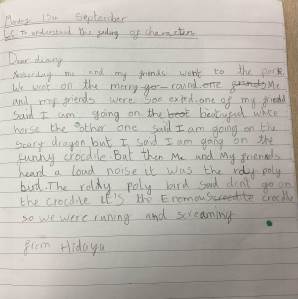 Monday 15th September
L.C To understand the feeling of character
Dear diary
Yesterday me and my friends went to the park.
We wet on the merry-go-round. one Me
and my friends were soo exted. one of my friend
said I am going on the best beatuful white
horse the other one said I am going on the
scary dragon but I said I am going on the
funny crocdile. But then Me and My friends
heard a load noise it was the roly poly
bird. The roldy poly bird said dont go on
the crocdile It's the Enemous crocdile
so we were runing and screaming
from Hidaya